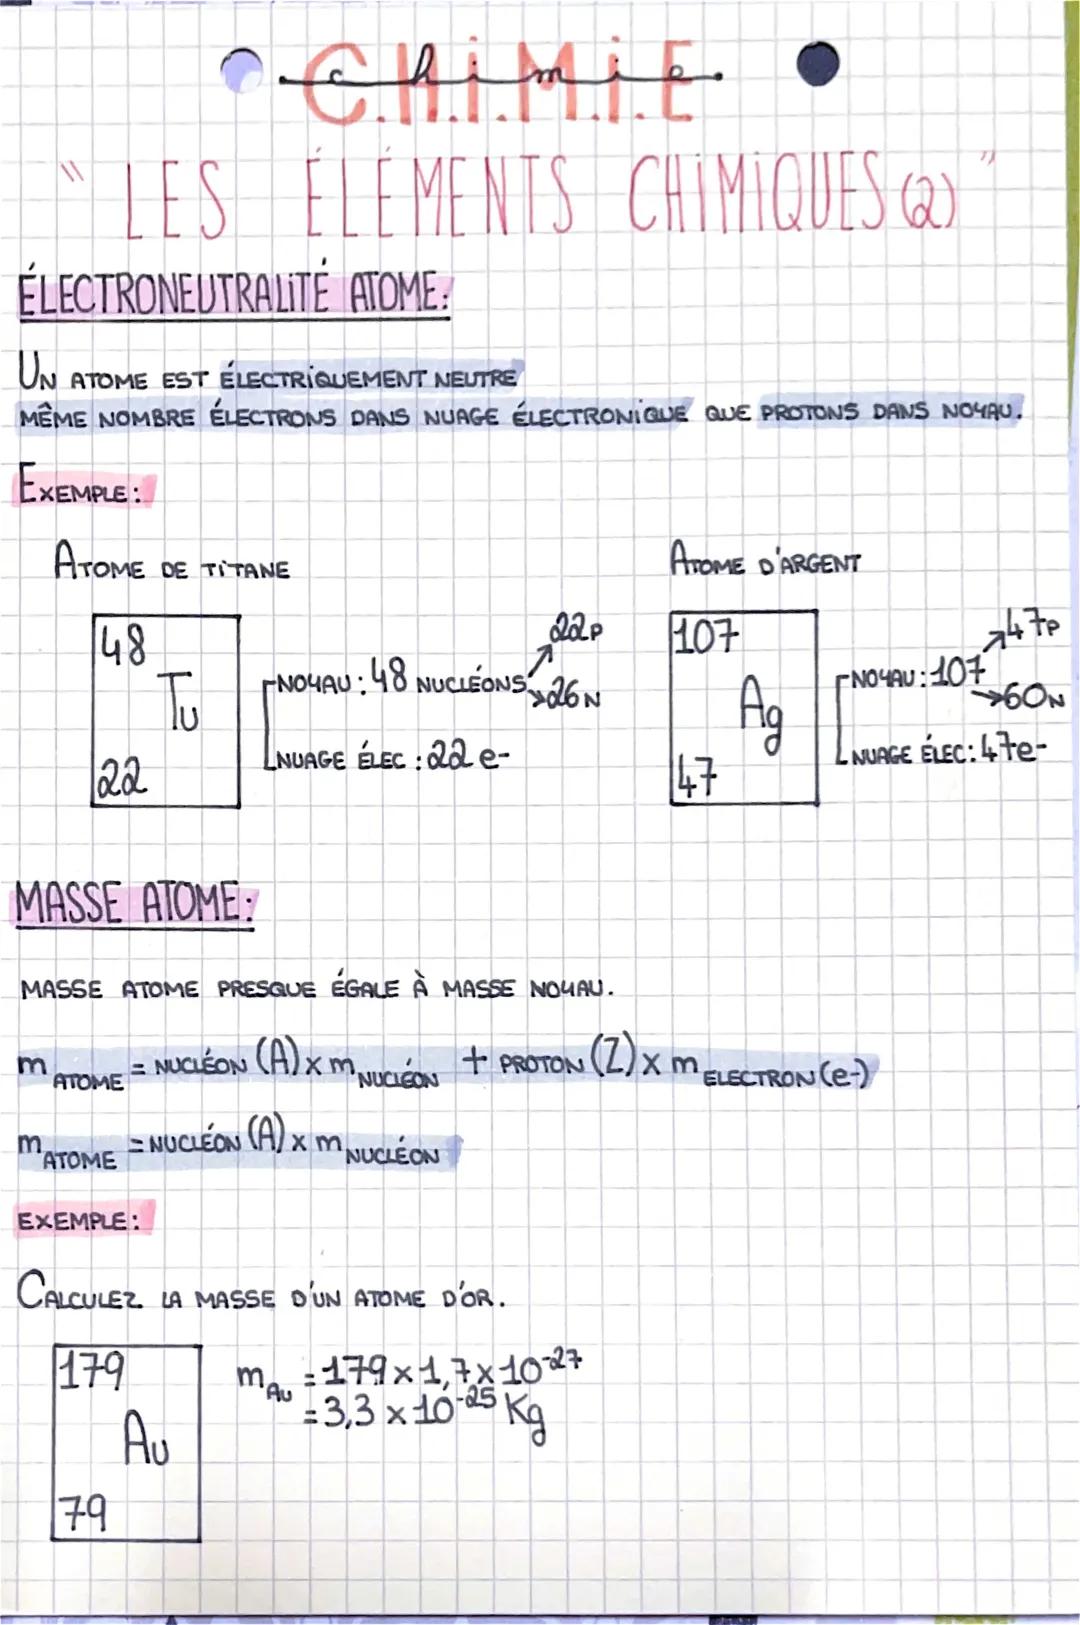 C.H.i.M.i.E
chimie
" LES ÉLÉMENTS CHiMiQUES (2) "
ÉLECTRONEUTRALiTÉ ATOME:
UN ATOME EST ÉLECTRiQUEMENT NEUTRE
MÊME NOMBRE ÉLECTRONS DANS NUAGE ÉLECTRONiQUE QUE PROTONS DANS NOYAU.
EXEMPLE:
ATOME DE TiTANE
48
Tu
22
NOYAU: 48 NUCLÉONS
22P
26N
NUAGE ÉLEC: 22 e-
ATOME D'ARGENT
107
Ag
47
NOYAU: 107
47P
60N
NUAGE ÉLEC: 47e-
MASSE ATOME:
MASSE ATOME PRESQUE ÉGALE À MASSE NOYAU.
m ATOME = NUCLÉON (A) x m NUCLÉON + PROTON (Z) x m ELECTRON (e-)
m ATOME = NUCLÉON (A) x m NUCLÉON
EXEMPLE:
CALCULEZ LA MASSE D'UN ATOME D'OR.
179
Au
79
m Au = 179 x 1,7 x 10⁻²⁷
= 3,3 x 10⁻²⁵ Kg